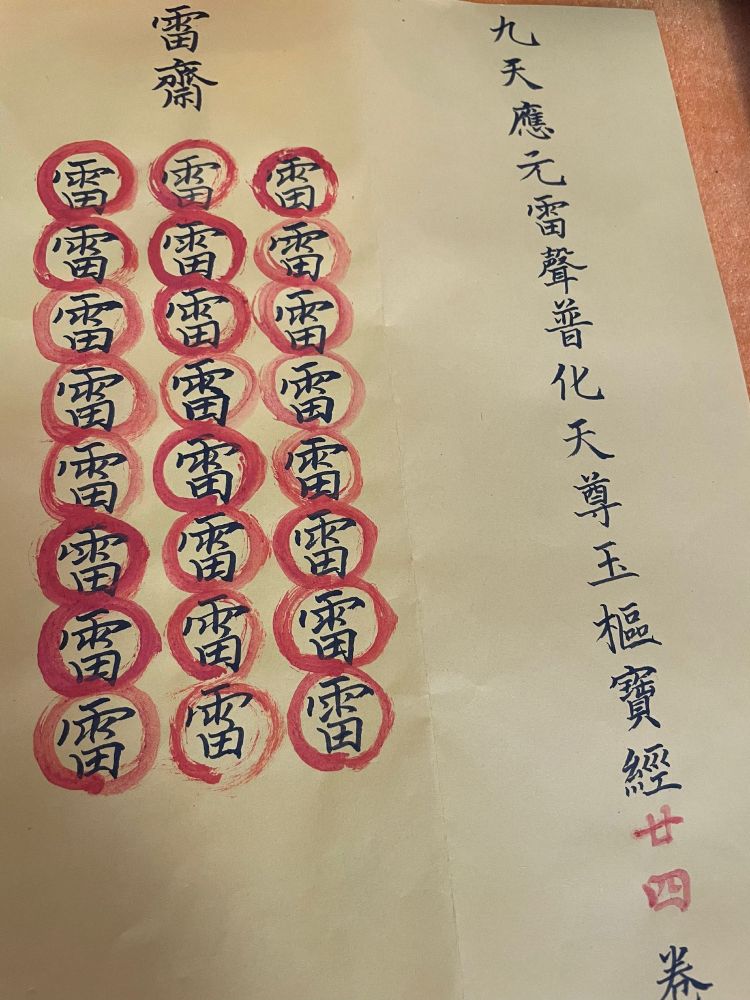 九天應元雷聲普化天尊玉樞寶經廿四卷
雷齋
雷雷雷雷雷雷雷雷
雷雷雷雷雷雷雷雷
雷雷雷雷雷雷雷雷